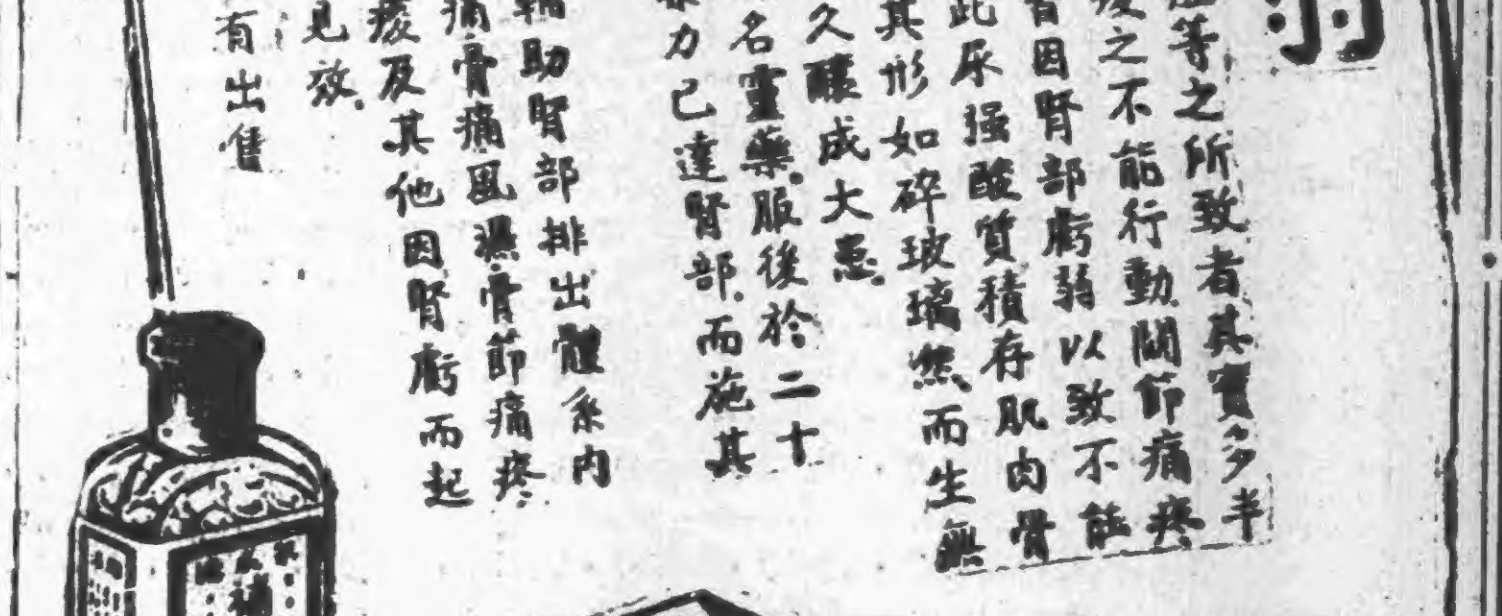 等之所致者其實多半
之不能行動關節痛疼
因腎部虧弱以致不能
此尿强酸質積存肌肉骨
其形如碎玻璃然而生無
久釀成大患
名靈藥服後於二十
力已達腎部而施其
輔助腎部排出體系內
痛骨痛風濕骨節痛疼
痠及其他因腎虧而起
見效
有出售